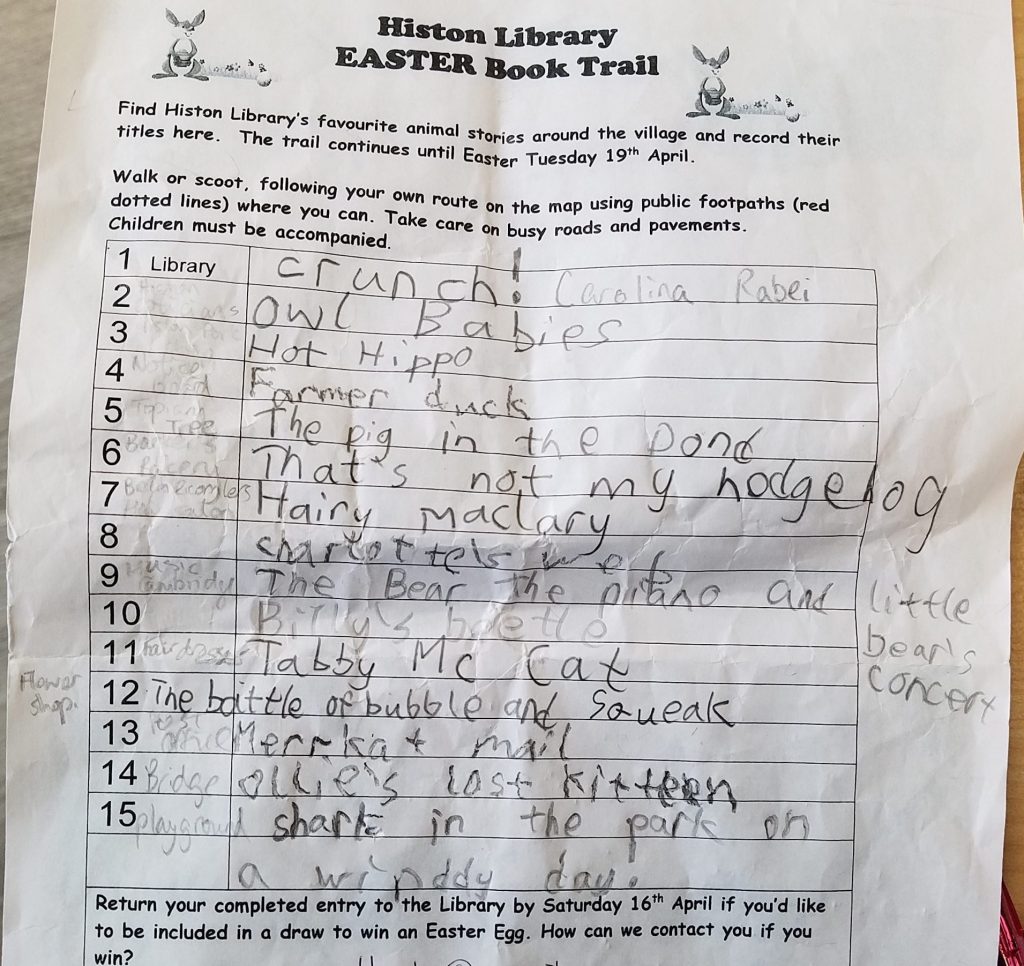 Histon Library
EASTER Book Trail
Find Histon Library's favourite animal stories around the village and record their
titles here. The trail continues until Easter Tuesday 19th April.
Walk or scoot, following your own route on the map using public footpaths (red
dotted lines) where you can. Take care on busy roads and pavements.
Children must be accompanied.
1 Library crunch! Carolina Rabei
2 Owl Babies
3 Hot Hippo
4 Notice Board Farmer duck
5 Topiary Tree The pig in the Pond
6 Barker's Bakery That's not my hodgehog
7 Hairy maclary
8
9 Music The Bear The pitano and little bear's concert
10 Billy's beetle
11 Tabby Mc Cat
Flower shop.
12 The battle of bubble and Squeak
13 Merrkat mail
14 Bridge Ollie's lost kitteen
15 playground shark in the park on
a winddy day!
Return your completed entry to the Library by Saturday 16th April if you'd like
to be included in a draw to win an Easter Egg. How can we contact you if you
win?